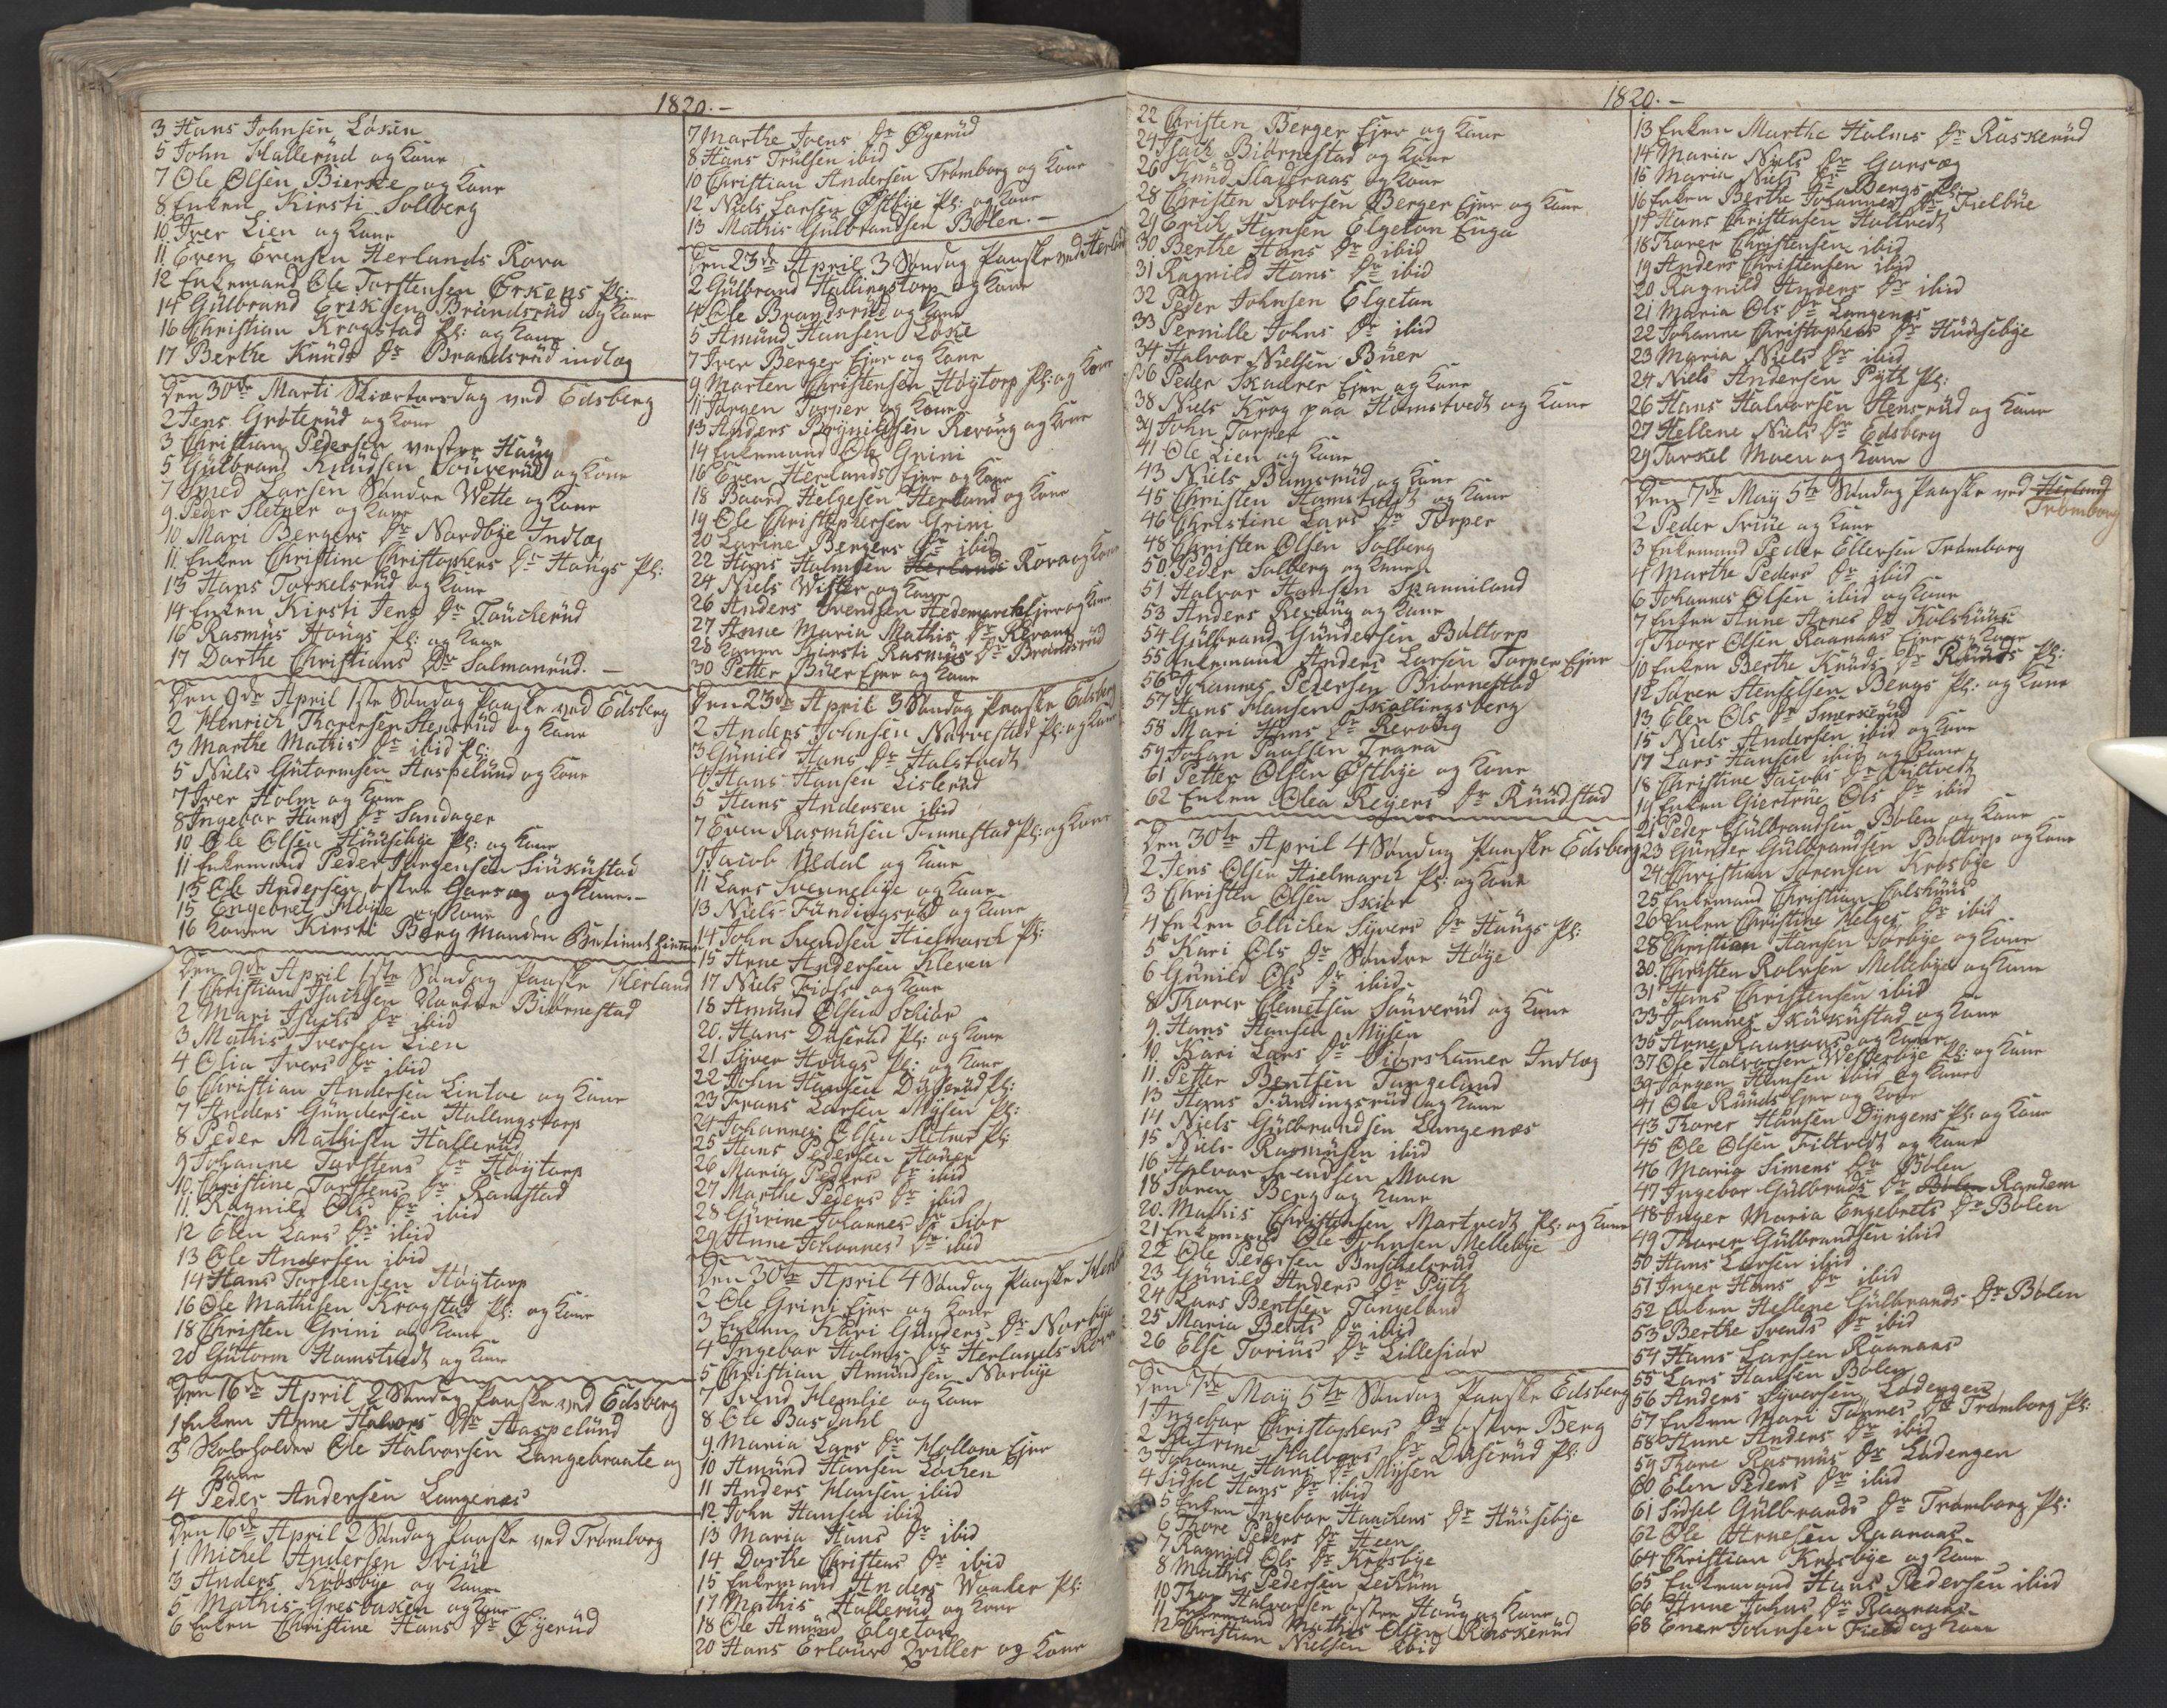 1820.-
3 Hans Johnsen Løsen
5 John Hallerud og Kone
7 Ole Olsen Bierke og Kone
8 Enken Kirsti Solberg
10 Iver Lien og Kone
11 Even Evensen Herlands Rova
12 Enkemand Ole Torstensen Ørkens Pl:
14 Gülbrand Eriksen Brandsrüd og Kone
16 Christian Krogstad Pl: og Kone
17 Berthe Knüds Dr Brandsrüd indlæg
Den 30te Marti Skiærtorsdag ved Edsberg
2 Jens Grøterüd og Kone
3 Christian Pedersen vestre Haüg
5 Gülbrand Knüdsen Soüverüd og Kone
7 Amed Larsen Søndre Wette og Kone
9 Peder Sletner og Kone
10 Mari Bergers Dr Nordbye Indlæg
11 Enken Christine Christophers Dr Haügs Pl:
13 Hans Torkelsrüd og Kone
14 Enken Kirsti Jens Dr Toücherüd
16 Rasmüs Haügs Pl: og Kone
17 Dorthe Christians Dr Salmonrüd. -
Den 9de April 1ste Søndag Paaske ved Edsberg
2 Henrich Thoresen Stensrüd og Kone
3 Marthe Mathis Dr ibid Pl:
5 Niels Gütormsen Haspelünd og Kone
7 Iver Holm og Kone
8 Ingebor Hans Dr Sandager
10 Ole Olsen Hüüsebye Pl: og Kone
11 Enkemand Peder Jørgensen Siüküstad
13 Ole Andersen østre Garseg og Kone.-
15 Engebret Moye og Kone
16 Konen Kirsti Berg Manden Betient hiemme
Den 9de April 1ste Søndag Paaske Herland
1 Christian Isachsen Nordre Biørnestad
2 Mari Isachs Dr ibid
3 Mathis Iversen Lien
4 Olia Ivers Dr ibid
6 Christian Andersen Lintoe og Kone
7 Anders Gündersen Hallingstorp
8 Peder Mathisen Hallerüd
9 Johanne Torstens Dr Høytorp
10 Christine Torstens Dr Ramstad
11 Ragnild Ols Dr ibid
12 Elen Lars Dr ibid
13 Ole Andersen ibid
14 Hans Torstensen Høytorp
16 Ole Mathisen Krogstad Pl: og Kone
18 Christen Grini og Kone
20 Gütorm Hamstvedt og Kone
Den 16de April 2 Søndag Paaske ved Edsberg
1 Enken Anne Halvors Dr Haaspelünd
3 Skoleholder Ole Halvorsen Langebraate og
Kone
4 Peder Andersen Langenes
Den 16de April 2 Søndag Paaske ved Trømborg
1 Michel Andersen Triüe
3 Anders Krosbye og Kone
5 Mathis Gresbüsen og Kone
6 Enken Christine Hans Dr Øyerüd
7 Marthe Ivers Dr Øyerüd
8 Hans Trülsen ibid
10 Christian Andersen Trømborg og Kone
12 Niels Larsen Østbye Pl: og Kone
13 Mathis Gülbrandsen Bølen.-
Den 23de April 3 Søndag Paaske ved Herland
2 Gülbrand Hallingstorp og Kone
4 Ole Brandsrüd og Kone
5 Amünd Hansen Løke
7 Iver Berger Eier og Kone
9 Marten Christensen Høytorp Pl: og Kone
11 Jørgen Torper og Kone
13 Anders Brynildsen Revoug og Kone
14 Enkemand Ole Grini
16 Even Herlands Eier og Kone
18 Baard Helgesen Herland og Kone
19 Ole Christophersen Grini
20 Larine Bergers Dr ibid
22 Hans Holmsen Herlands Rova og Kone
24 Niels Wister og Kone
26 Anders Svendsen Hedemarch Eier og Kone
27 Anne Maria Mathis Dr Revoug
28 Konen Kirsti Rasmüs Dr Brandsrüd
30 Petter Büer Eier og Kone
Den 23de April 3 Søndag Paaske Edsberg
2 Anders Johnsen Narvestad Pl: og Kone
3 Günild Hans Dr Halstvedt
4 Hans Hansen Lislerüd
5 Hans Andersen ibid
7 Even Rasmüsen Finnestad Pl: og Kone
9 Jacob Nedal og Kone
11 Lars Svennebye og Kone
13 Niels Fündingsrüd og Kone
14 John Svendsen Hielmarch Pl:
15 Arne Andersen Kleven
17 Niels Fiøs og Kone
18 Amünd Olsen Schiør
20. Hans Düserüd Pl: og Kone
21 Syver Haügs Pl: og Kone
22 John Hansen Düserüd Pl:
23 Frans Larsen Mysen Pl:
24 Johannes Olsen Sletner Pl:
25 Hans Pedersen Haüer
26 Maria Peders Dr ibid
27 Marthe Peders Dr ibid
28 Gürine Johannes Dr Siør
29 Anne Johannes Dr ibid
Den 30te April 4 Søndag Paaske Herland
2 Ole Grini Eier og Kone
3 Enken Kari Günders Dr Norbye
4 Ingebor Holms Dr Herlands Rova
5 Christian Amündsen Norbye
7 Svend Hemlie og Kone
8 Ole Basdahl
9 Maria Lars Dr Mollom Eier
10 Amünd Hansen Løchen
11 Anders Hansen ibid
12 John Hansen ibid
13 Maria Hans Dr ibid
14 Dorthe Christens Dr ibid
15 Enkemand Anders Waaler Pl:
17 Mathis Hallerüd og Kone
18 Ole Amünd Elgeton
20 Hans Erlaür Qviller og Kone
1820.-
22 Christen Berger Eier og Kone
24 Isach Biørnestad og Kone
26 Knüd Sladeraas og Kone
28 Christen Rolvsen Berger Eier og Kone
29 Erich Hansen Elgeton Enga
30 Berthe Hans Dr ibid
31 Ragnild Hans Dr ibid
32 Peder Johnsen Elgeton
33 Pernille Johns Dr ibid
34 Halvor Nielsen Büer
36 Peder Skaarer Eier og Kone
38 Niels Krog paa Homstvedt og Kone
39 John Torper
41 Ole Lien og Kone
43 Niels Bamsrüd og Kone
45 Christen Homstvedt og Kone
46 Christine Lars Dr Torper
48 Christen Olsen Solberg
50 Peder Solberg og Kone
51 Halvor Hansen Spanniland
53 Anders Revoüg og Kone
54 Gülbrand Gündersen Bültorp
55 Enkemand Anders Larsen Torper Eier
56 Johannes Pedersen Biørnestad
57 Hans Hansen Skallingsberg
58 Mari Hans Dr Revoüg
59 Johan Paülsen Trara
61 Petter Olsen Østbye og Kone
62 Enken Olea Reyers Dr Rüüdstad
Den 30te April 4 Søndag Paaske Edsberg
2 Jens Olsen Hielmarch Pl: og Kone
3 Christen Olsen Skiør
4 Enken Ellichen Syvers Dr Haügs Pl:
5 Kari Ols Dr Søndre Høye
6 Günild Ols Dr ibid
8 Thorer Clemetsen Soüverüd og Kone
9. Hans Hansen Mysen
10. Kari Lars Dr Siørshamer Indlæg
11. Petter Bentsen Tangelund
13 Hans Fündingsrüd og Kone
14 Niels Gülbrandsen Langenes
15 Niels Rasmüsen ibid
16 Halvor Svendsen Moen
18 Søren Berg og Kone
20. Mathis Christensen Martvedt Pl: og Kone
21 Enkemand Ole Johnsen Mellebye
22 Ole Pedersen Buschelsrüd
23 Günild Anders Dr Pyth
24 Lars Bentsen Tangeland
25 Maria Bents Dr ibid
26 Else Toriüs Dr Lillesiør
Den 7de May 5te Søndag Paaske Edsberg
1 Ingebor Christophers Dr østre Berg
2 Katrine Halvors Dr Düserüd Pl:
3 Johanne Hans Dr Mysen
4 Sidsel Hans Dr ibid
5 Enken Ingebor Haachens Dr Hüüsebye
6 Thore Peders Dr Heen
7 Ragnild Ols Dr Krosbye
8 Mathis Pedersen Lechüm
10 Thor Halvorsen østre Haüg og Kone
11 Enkemand Mathis Olsen Raskerüd
12 Christian Nielsen ibid
13 Enken Marthe Holms Dr Raskerüd
14 Maria Niels Dr Garseg
15 Maria Niels Dr Bergs Pl:
16 Enken Berthe Johannes Dr Fielbüe
17 Hans Christensen Haltvedt
18 Thorer Christensen ibid
19 Anders Christensen ibid
20 Ragnild Anders Dr ibid
21 Maria Ols Dr Langenes
22 Johanne Christophers Dr Hüüsebye
23 Maria Niels Dr ibid
24 Niels Andersen Pyth Pl:
26 Hans Halvorsen Stensrüd og Kone
27 Hellene Niels Dr Edsberg
29 Torkel Moen og Kone
Den 7de May 5te Søndag Paaske ved Herland
Trømborg
2 Peder Triüe og Kone
3 Enkemand Peder Ellersen Trømborg
4 Marthe Peders Dr ibid
6 Johannes Olsen ibid og Kone
7 Enken Anne Arnes Dr Kolshüüs
9 Thorer Olsen Raanaas Eier og Kone
10 Enken Berthe Knüds Dr Rüüds Pl:
12 Søren Stenselsen Bergs Pl: og Kone
13 Elen Ols Dr Smerkerüd
15 Niels Andersen ibid og Kone
17 Lars Hansen ibid og Kone
18 Christine Jacobs Dr Filtvedt
19 Enken Giertrüe Ols Dr ibid
21 Peder Gülbrandsen Bølen og Kone
23 Günder Gülbrandsen Bültorp og Kone
24 Christian Sørensen Krosbye
25 Enkemand Christian Colshüüs
26 Enken Christine Helges Dr ibid
28 Christian Hansen Sørbye og Kone
30. Christen Rolvsen Mellebye og Kone
31 Hans Christensen ibid
33 Johannes Sküküstad og Kone
35 Arne Raanaas og Kone
37 Ole Halvorsen Westerbye Pl: og Kone
39 Jørgen Hansen ibid og Kone
41 Ole Rüüds Eier og Kone
43 Thorer Hansen Dyngens Pl: og Kone
45 Ole Olsen Filtvedt og Kone
46 Maria Simens Dr Bølen
47 Ingebor Gülbrands Dr Bølen Randem
48 Inger Maria Engebrets Dr Bølen
49 Thorer Gülbrandsen ibid
50 Hans Larsen ibid
51 Inger Hans Dr ibid
52 Enken Hellene Gülbrands Dr Bølen
53 Berthe Svends Dr ibid
54 Hans Larsen Raanaas
55 Lars Hansen Bølen
56 Anders Syversen Lødengen
57 Enken Mari Tønnes Dr Trømborg Pl:
58 Anne Anders Dr ibid
59 Thore Rasmüs Dr Lødengen
60 Elen Peders Dr ibid
61 Sidsel Gülbrands Dr Trømborg Pl:
62 Ole Arnesen Raanaas
64 Christian Krosbye og Kone
65 Enkemand Hans Pedersen ibid
66 Anne Johns Dr Raanaas
68 Ener Johnsen Field og Kone